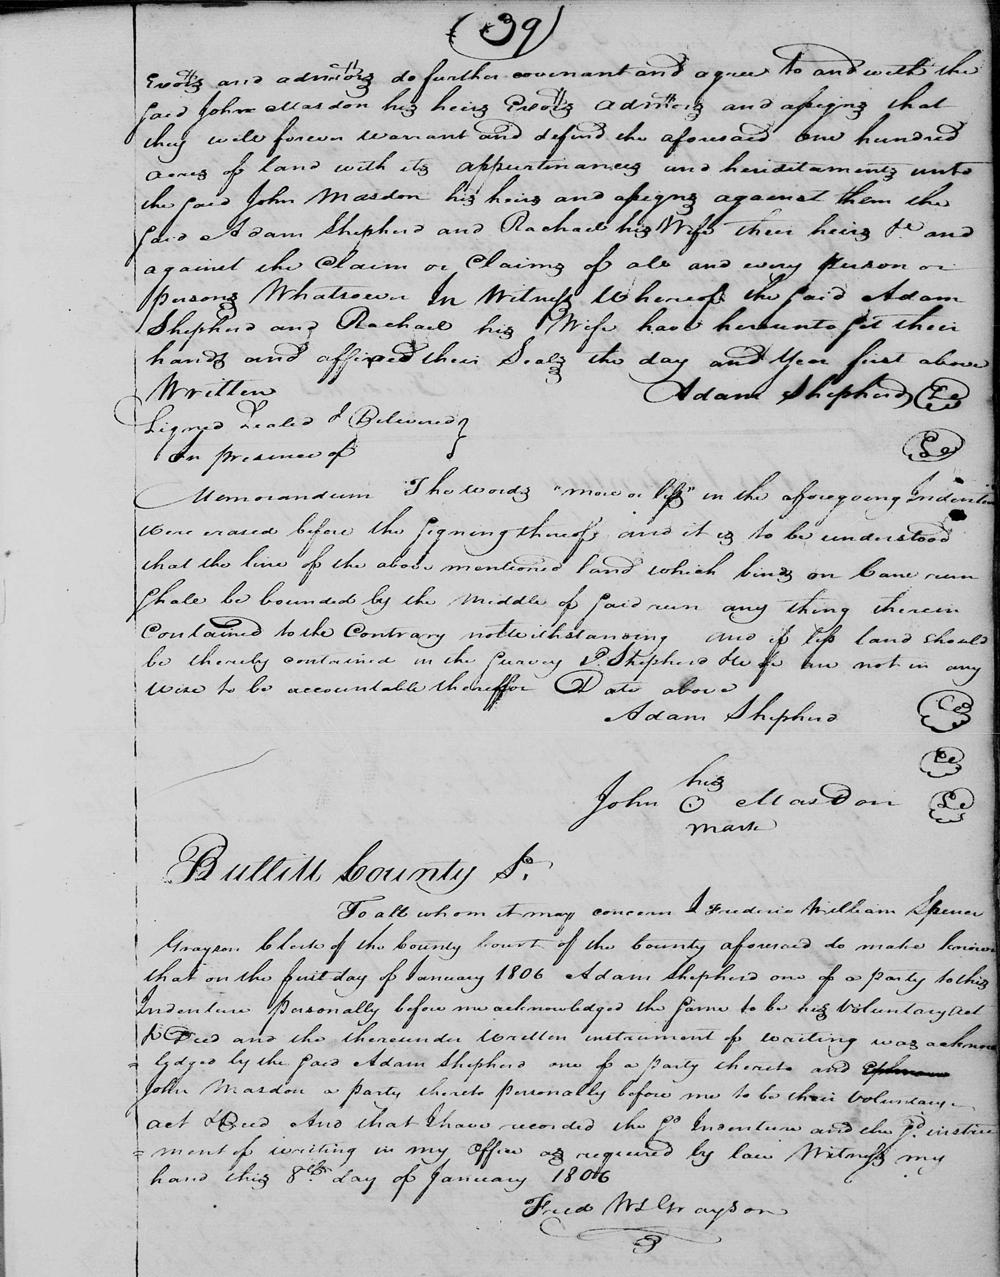 (39)
Exors and admors do further covenant and agree to and with the
said John Masdon his heirs Exors admors and assigns that
they will forever warrant and defend the aforesaid one hundred
acres of land with its appurtenances and heriditaments unto
the said John Masdon his heirs and assigns against them the
said Adam Shepherd and Rachael his Wife their heirs &c and
against the Claim or Claims of all and every person or
persons Whatsoever In Witness Whereof the said Adam
Shepherd and Rachael his Wife have hereunto set their
hands and affixed their Seals the day and Year first above
Written Adam Shepherd
Signed Sealed & Delivered
in presence of
Memorandum The words "more or less" in the aforegoing Indenture
were erased before the signing thereof and it is to be understood
that the line of the above mentioned land which binds on Cane run
shall be bounded by the Middle of said run any thing therein
Contained to the Contrary notwithstanding and if less land should
be thereby contained in the survey Shepherd & Wife are not in any
wise to be accountable thereffor Date above
Adam Shepherd
his
John O Masdon
mark
Bullitt County Sc.
To all whom it may concern I Frederic William Spencer
Grayson Clerk of the County Court of the County aforesaid do make known
that on the first day of January 1806 Adam Shepherd one of a party to this
Indenture Personally before me acknowledged the same to be his Voluntary act
& Deed and the thereunder written instrument of writing was acknow
=ledged by the said Adam Shepherd one of a party thereto and
John Masdon a party thereto personally before me to be their Voluntary
act & Deed And that I have recorded the sd Indenture and the sd instru
=ment of writing in my Office as required by law Witness my
hand this 8th day of January 1806
Fred Ws Grayson